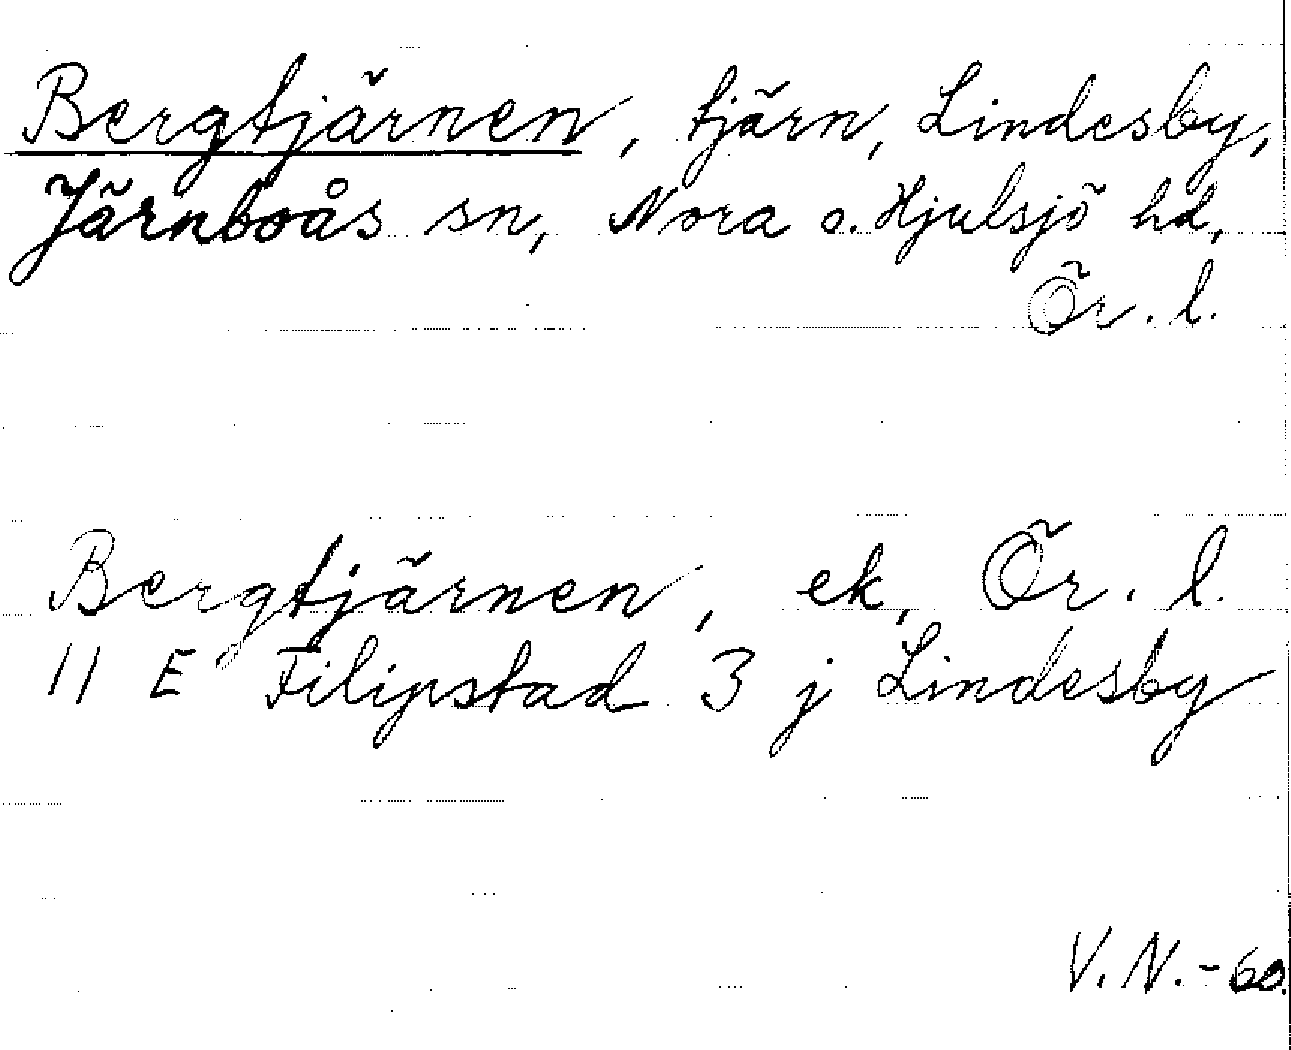 Bergtjärnen, tjärn, Lindesby,
Järnboås sn, Nora o. Hjulsjö hd,
Ör. l.
Bergtjärnen, ek, Ör. l.
11 E Filipstad 3 j Lindesby
V. N. - 60.